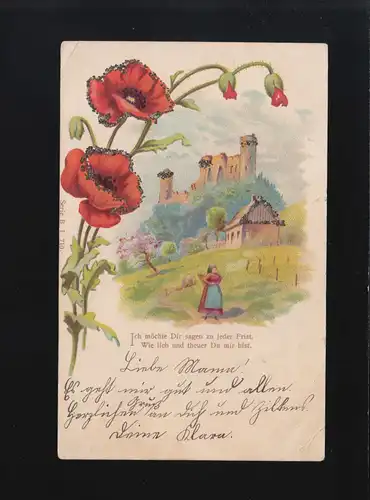 Serie B. 1 710
Ich möchte Dir sagen zu jeder Frist,
Wie lieb und theuer Du mir bist.
Liebe Mama!
Es geht mir gut und allen.
Herzlichen Gruß an dich und
Deine Klara.